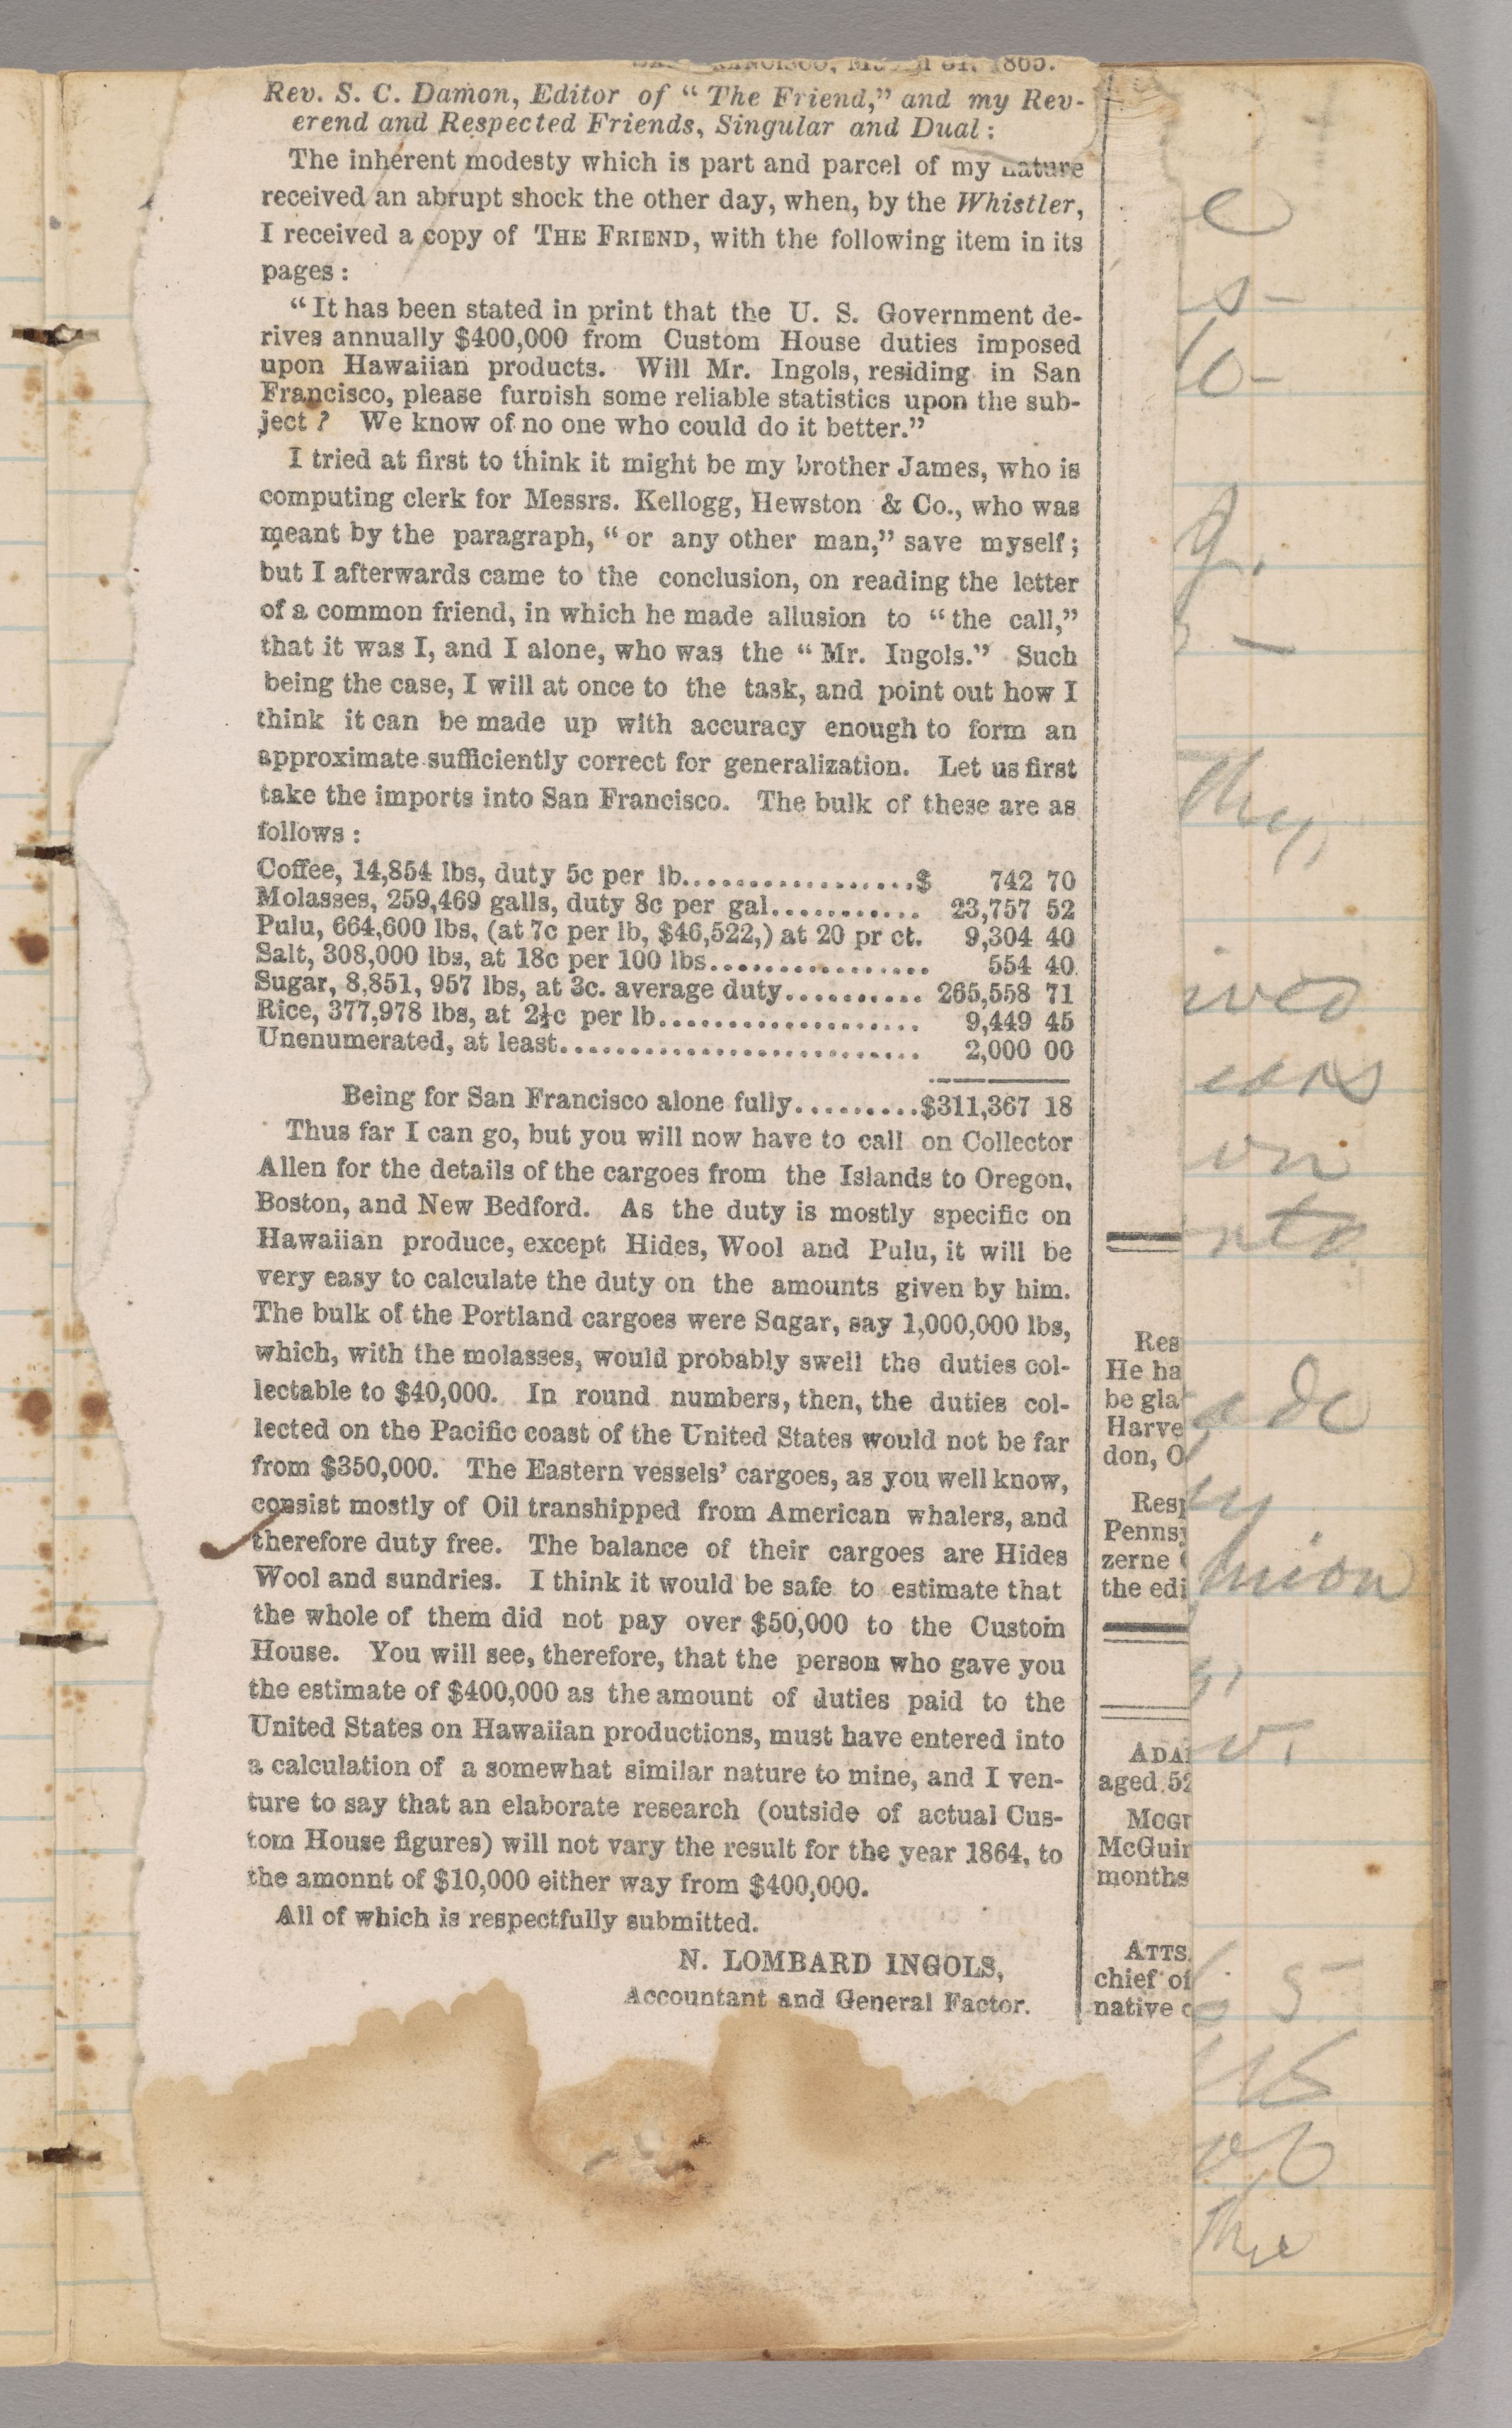 1865.
Rev. S. C. Damon, Editor of “ The Friend,” and my Rev-
erend and Respected Friends, Singular and Dual :
The inherent modesty which is part and parcel of my nature
received an abrupt shock the other day, when, by the Whistler,
I received a copy of THE FRIEND, with the following item in its
pages :
“ It has been stated in print that the U. S. Government de-
rives annually $400,000 from Custom House duties imposed
upon Hawaiian products. Will Mr. Ingols, residing in San
Francisco, please furnish some reliable statistics upon the sub-
ject ? We know of no one who could do it better.”
I tried at first to think it might be my brother James, who is
computing clerk for Messrs. Kellogg, Hewston & Co., who was
meant by the paragraph, “ or any other man,” save myself ;
but I afterwards came to the conclusion, on reading the letter
of a common friend, in which he made allusion to “ the call,”
that it was I, and I alone, who was the “ Mr. Ingols.” Such
being the case, I will at once to the task, and point out how I
think it can be made up with accuracy enough to form an
approximate sufficiently correct for generalization. Let us first
take the imports into San Francisco. The bulk of these are as
follows :
Coffee, 14,854 lbs, duty 5c per lb.................$ 742 70
Molasses, 259,469 galls, duty 8c per gal........... 23,757 52
Pulu, 664,600 lbs, (at 7c per lb, $46,522,) at 20 pr ct. 9,304 40
Salt, 308,000 lbs, at 18c per 100 lbs................ 554 40
Sugar, 8,851, 957 lbs, at 3c. average duty.......... 265,558 71
Rice, 377,978 lbs, at 2½c per lb................... 9,449 45
Unenumerated, at least.......................... 2,000 00
Being for San Francisco alone fully.........$311,367 18
Thus far I can go, but you will now have to call on Collector
Allen for the details of the cargoes from the Islands to Oregon,
Boston, and New Bedford. As the duty is mostly specific on
Hawaiian produce, except Hides, Wool and Pulu, it will be
very easy to calculate the duty on the amounts given by him.
The bulk of the Portland cargoes were Sugar, say 1,000,000 lbs,
which, with the molasses, would probably swell the duties col-
lectable to $40,000. In round numbers, then, the duties col-
lected on the Pacific coast of the United States would not be far
from $350,000. The Eastern vessels’ cargoes, as you well know,
consist mostly of Oil transhipped from American whalers, and
therefore duty free. The balance of their cargoes are Hides
Wool and sundries. I think it would be safe to estimate that
the whole of them did not pay over $50,000 to the Custom
House. You will see, therefore, that the person who gave you
the estimate of $400,000 as the amount of duties paid to the
United States on Hawaiian productions, must have entered into
a calculation of a somewhat similar nature to mine, and I ven-
ture to say that an elaborate research (outside of actual Cus-
tom House figures) will not vary the result for the year 1864, to
the amonnt of $10,000 either way from $400,000.
All of which is respectfully submitted.
N. LOMBARD INGOLS,
Accountant and General Factor.
Res
He ha
be gla
Harve
don, O
Resp
Pennsy
zerne
the edi
ADA
aged 52
McGuir
months
ATTS
chief of
native